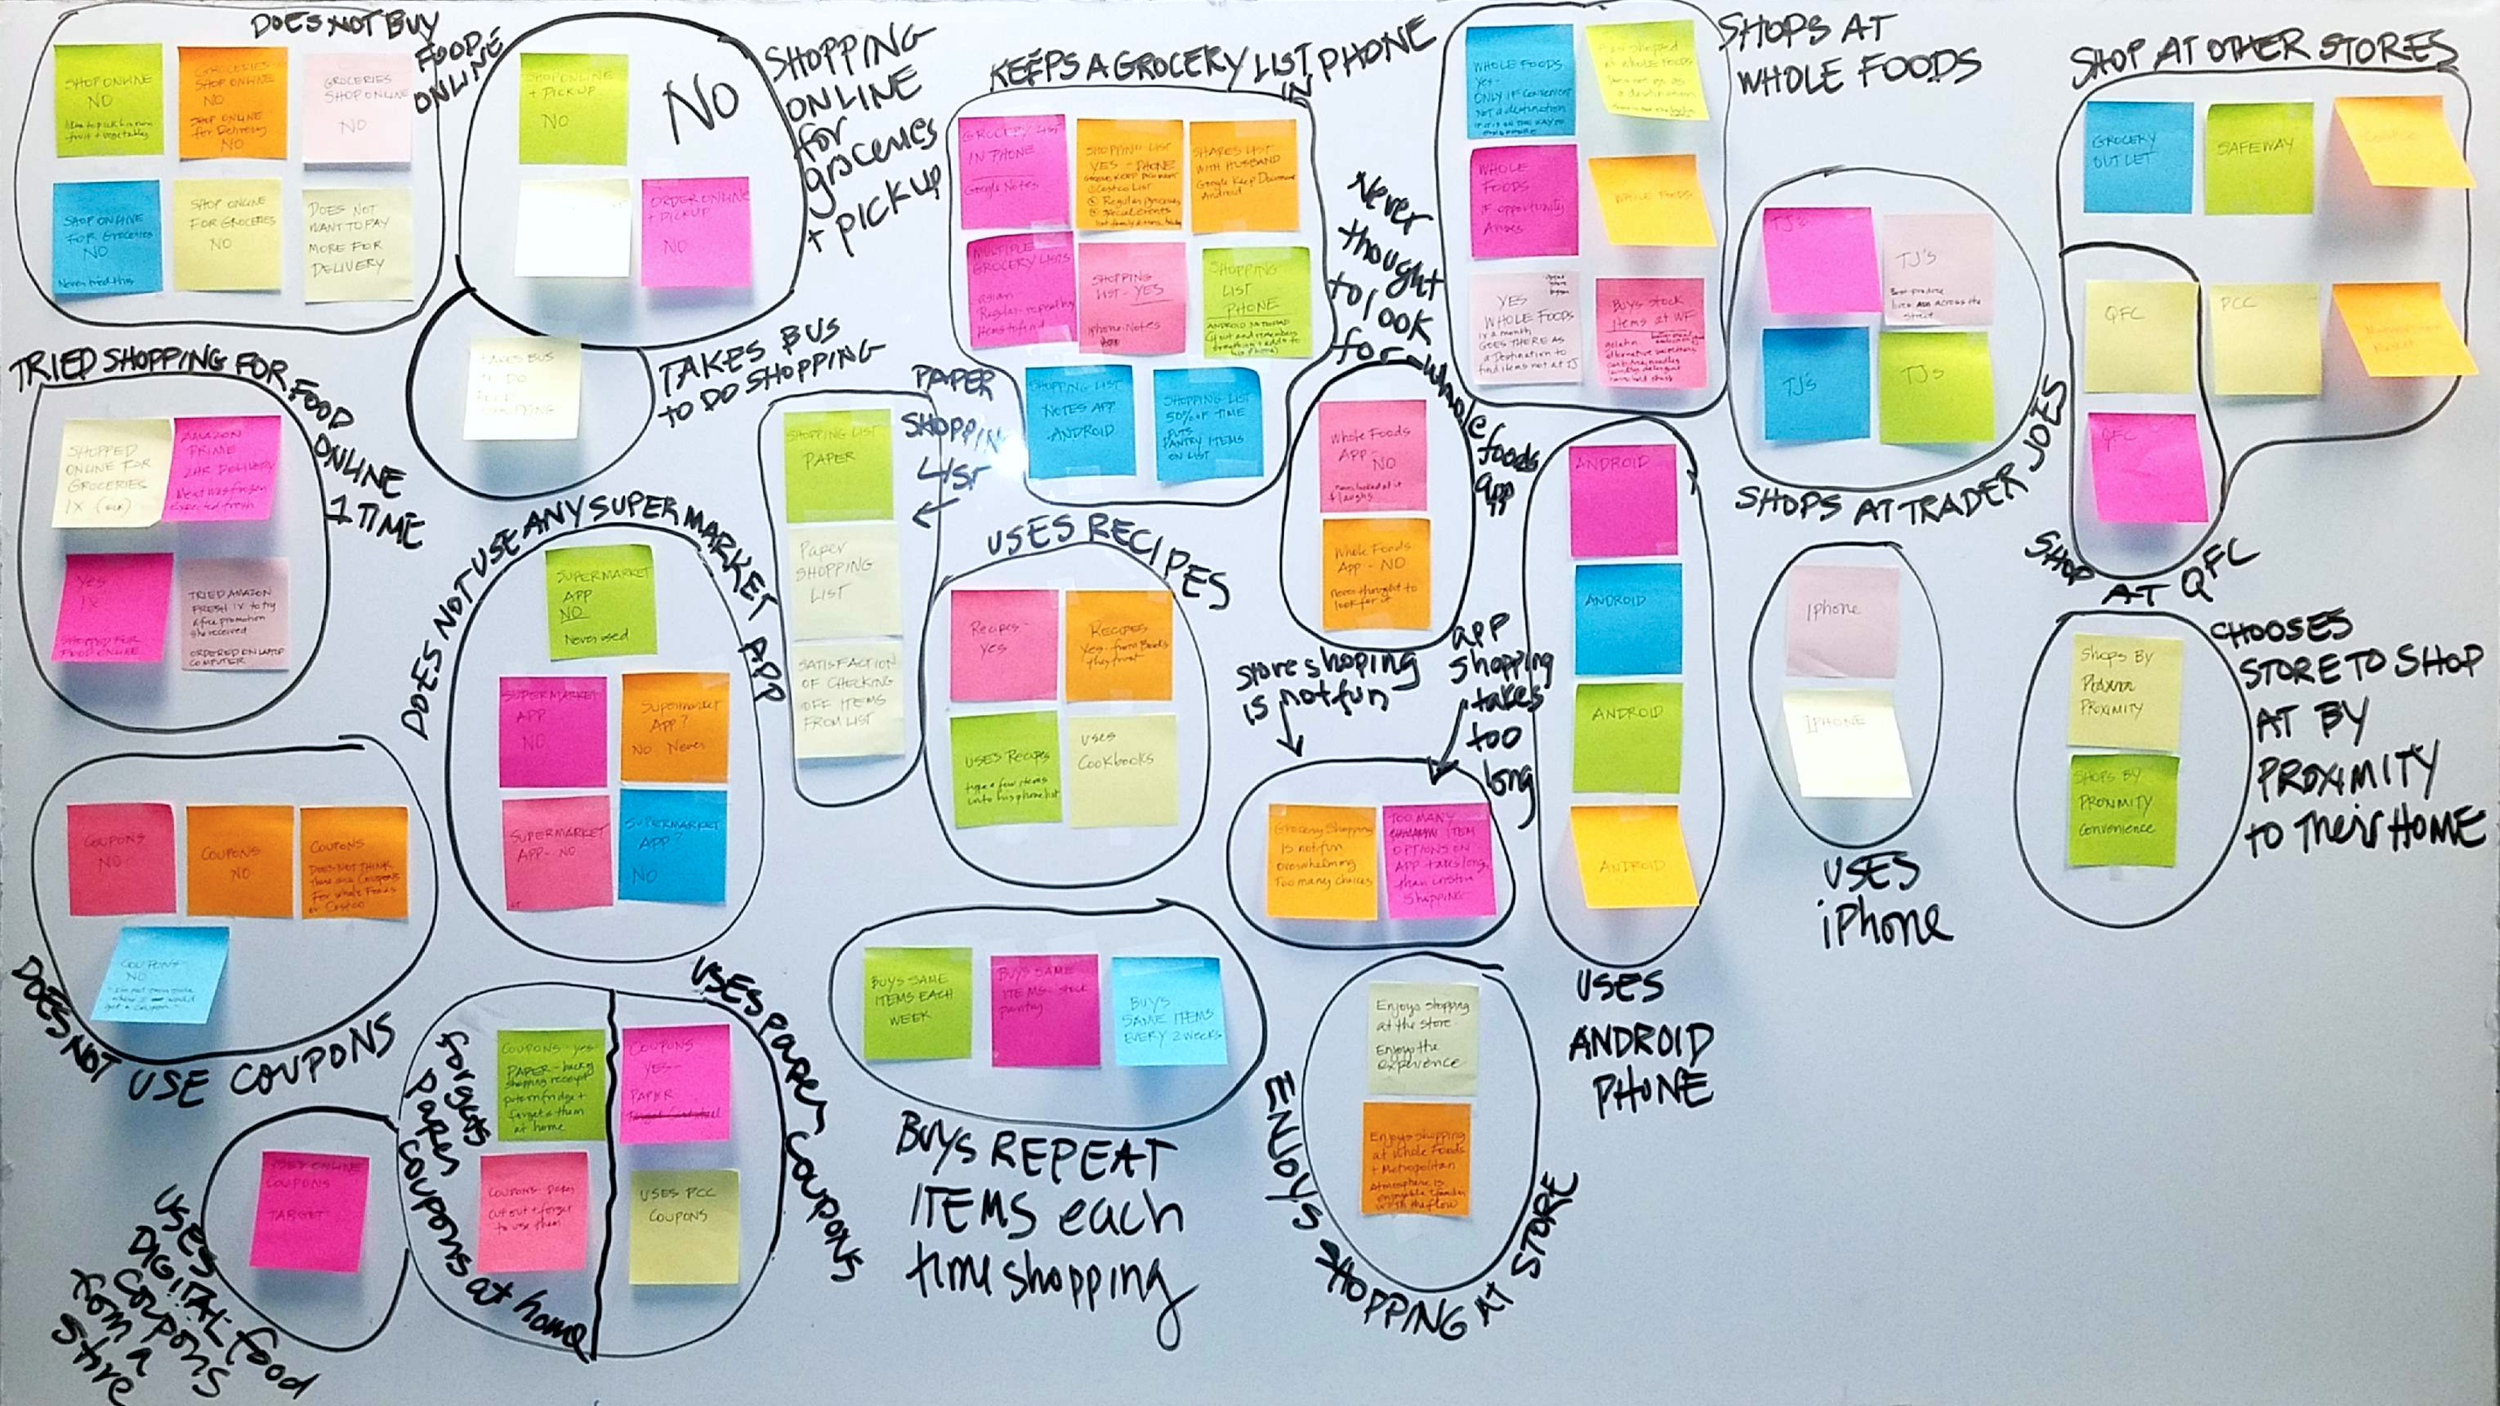 DOES NOT BUY
FOOD
ONLINE
SHOP ONLINE
NO
GROCERIES
SHOP ONLINE
NO
SHOP ONLINE
for Delivery
NO
GROCERIES
SHOP ONLINE
NO
SHOP ONLINE
FOR Groceries
NO
Never tried this
SHOP ONLINE
FOR GROCERIES
NO
DOES NOT
WANT TO PAY
MORE FOR
DELIVERY
SHOPPING
ONLINE
for
groceries
+ PICKUP
SHOP ONLINE
+ PICKUP
NO
NO
ORDER ONLINE
+ PICKUP
NO
TAKES BUS
TO DO SHOPPING
TAKES BUS
TO DO
FOOD
SHOPPING
TRIED SHOPPING FOR FOOD
ONLINE
1 TIME
SHOPPED
ONLINE FOR
GROCERIES
1X
AMAZON
PRIME
2HR DELIVERY
Meat was frozen
Expected fresh
Yes
1X
SHOPPED FOR
FOOD ONLINE
TRIED AMAZON
FRESH 1X to try
a free promotion
she received
ORDERED ON LAPTOP
COMPUTER
DOES NOT USE ANY SUPERMARKET APP
SUPERMARKET
APP
NO
Never used
SUPERMARKET
APP
NO
SUPERMARKET
APP?
NO Never
SUPERMARKET
APP - NO
SUPERMARKET
APP?
NO
PAPER
SHOPPING
LIST
SHOPPING LIST
PAPER
Paper
SHOPPING
LIST
SATISFACTION
OF CHECKING
OFF ITEMS
FROM LIST
KEEPS A GROCERY LIST IN PHONE
GROCERY LIST
IN PHONE
Google Notes
SHOPPING LIST
YES - PHONE
Costco List
Regular groceries
special events
SHARES LIST
WITH HUSBAND
Google Keep Document
Android
MULTIPLE
GROCERY LISTS
asian
Regular repeating
SHOPPING
LIST - YES
iphone Notes
SHOPPING
LIST
PHONE
SHOPPING LIST
NOTES APP
ANDROID
SHOPPING LIST
50% OF TIME
PUTS
PANTRY ITEMS
ON LIST
USES RECIPES
Recipes -
yes
RECIPES
Yes - from Books
they trust
USES Recipes
type a few items
into his phone list
uses
Cookbooks
Never
thought
to look
for whole
foods
app
Whole Foods
App -
NO
never looked at it
+ laughs
Whole Foods
App - NO
never thought to
look for it
SHOPS AT
WHOLE FOODS
WHOLE FOODS
Yes -
ONLY IF CONVENIENT
NOT a destination
WHOLE
FOODS
IF opportunity
Arises
WHOLE FOODS
YES
WHOLE FOODS
1x a month
GOES THERE AS
a Destination to
find items not at TJ
BUYS STOCK
Items at WF
SHOPS AT TRADER JOES
TJ's
TJ's
Best produce
lives across the
street
TJ'S
TJ's
SHOP AT OTHER STORES
GROCERY
OUTLET
SAFEWAY
PCC
SHOP AT QFC
QFC
QFC
store shoping
is not fun
app
shopping
takes
too
long
Grocery Shopping
Is not fun
overwhelming
Too many choices
TOO MANY
ITEM
OPTIONS ON
APP - takes long,
than instore
shopping
USES
ANDROID
PHONE
ANDROID
ANDROID
ANDROID
ANDROID
USES
iPhone
Iphone
IPHONE
CHOOSES
STORE TO SHOP
AT BY
PROXIMITY
to Their HOME
Shops By
PROXIMITY
SHOPS BY
PROXIMITY
Convenience
DOES NOT USE COUPONS
COUPONS
NO
COUPONS
NO
COUPONS
DOES NOT THINK
there are Coupons
For Whole Foods
or Costco
COUPONS
NO
USES
DIGITAL food
coupons
from a
store
USED ONLINE
COUPONS
TARGET
forgets
paper
coupons at home
COUPONS - yes
PAPER - back of
shopping receipt
puts on fridge +
forgets them
at home
COUPONS - paper
cut out + forget
to use them
USES paper coupons
COUPONS
YES -
PAPER
USES PCC
COUPONS
BUYS REPEAT
ITEMS each
time shopping
BUYS SAME
ITEMS EACH
WEEK
BUYS SAME
ITEMS - stock
pantry
BUYS
SAME ITEMS
EVERY 2 weeks
ENJOYS SHOPPING AT STORE
Enjoys shopping
at the store
Enjoys the
experience
Enjoys shopping
at Whole Foods
+ Metropolitan
Atmosphere is